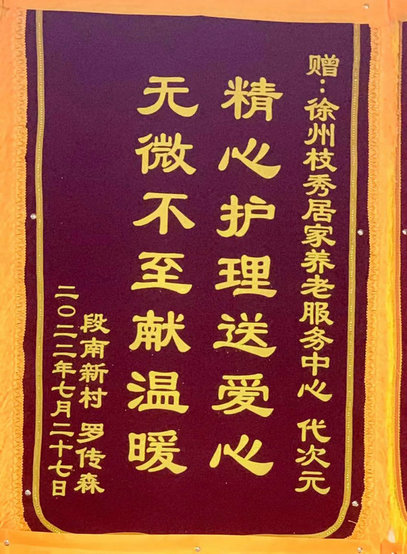 赠：徐州枝秀居家养老服务中心 代次元
精心护理送爱心
无微不至献温暖
段南新村 罗传森
二〇二二年七月二十七日